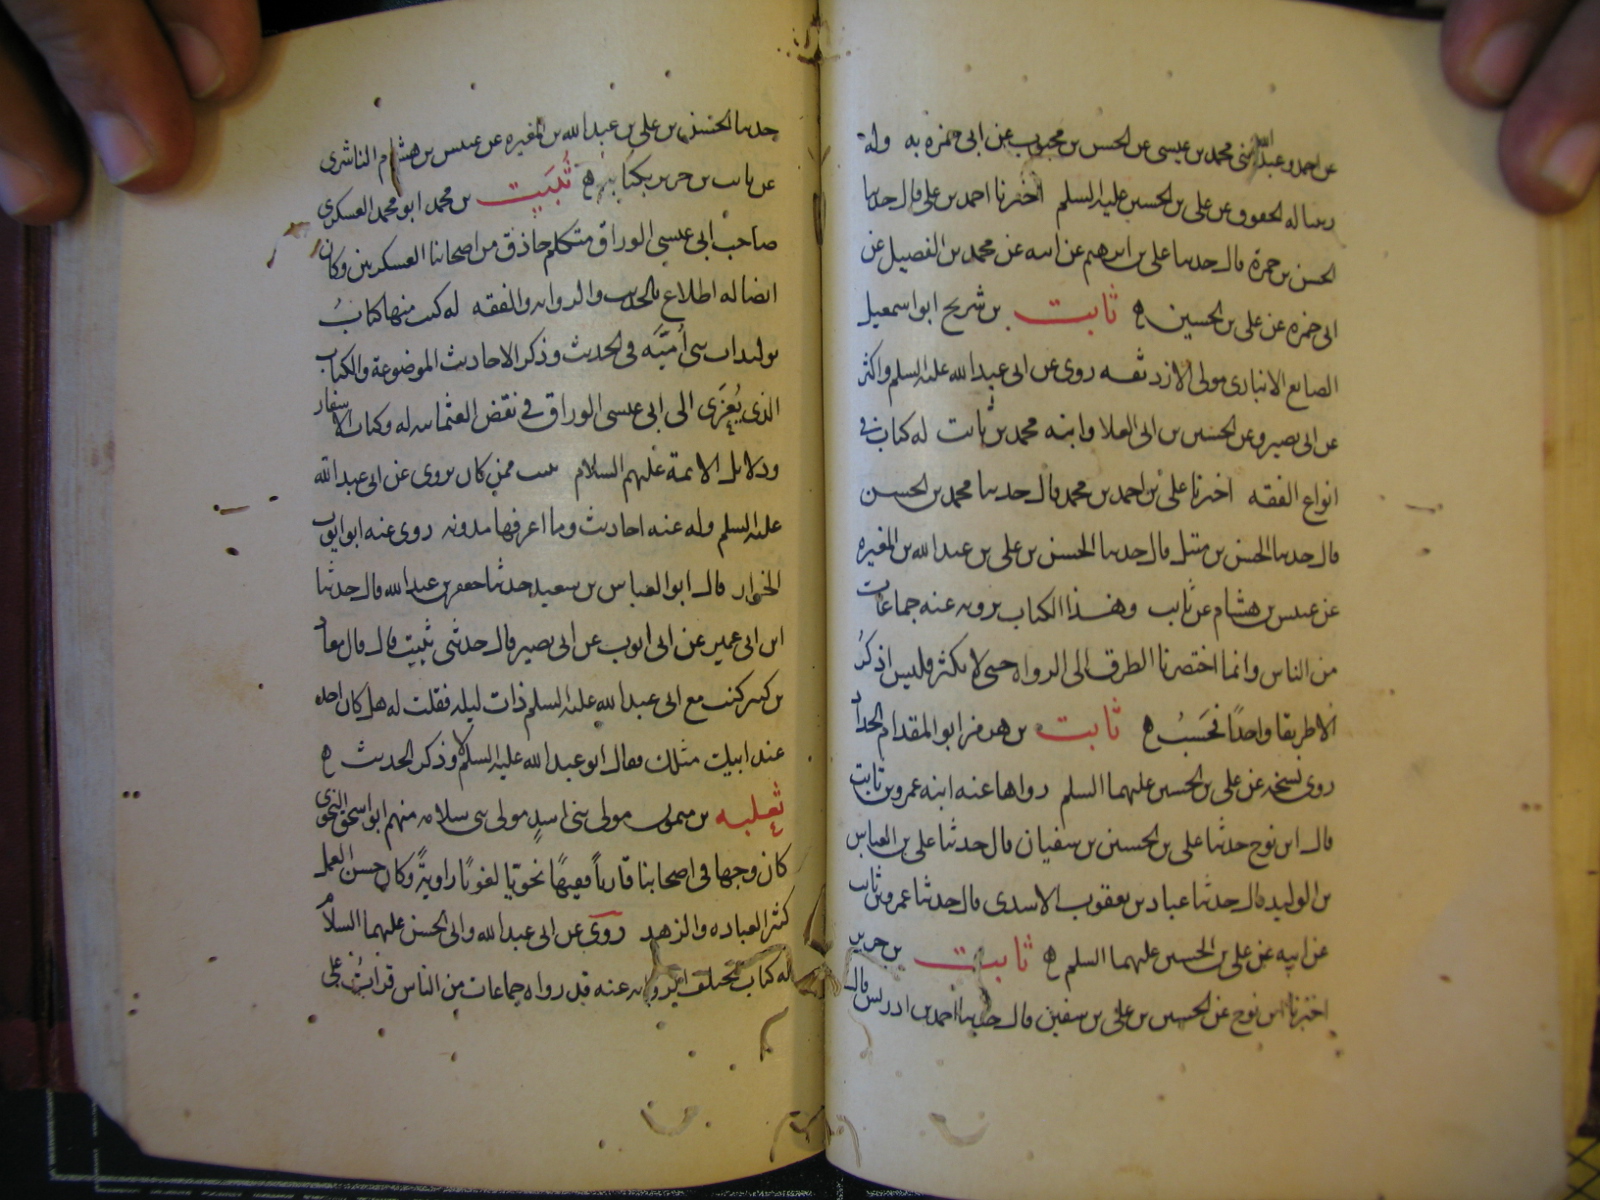 عن احمد وعبدالله ابنى محمد بن عيسى عن الحسن بن محبوب عن ابى حمزه به وله
رساله الحقوق عن على بن الحسين عليه السلم اخبرنا احمد بن على قال حدثنا
الحسن بن حمزة قال حدثنا على بن ابرهيم عن ابيه عن محمد بن الفصيل عن
ابى حمزه عن على بن الحسين ه ثابت بن شريح ابو اسمعيل
الصايع الانبارى مولى الازد ثقه روى عن ابى عبدالله عليه السلم واكثر
عن ابى بصير وعن الحسين بن ابى العلا وابنه محمد بن ثابت له كتاب فى
انواع الفقه اخبرنا على بن احمد بن محمد قال حدثنا محمد بن الحسن
قال حدثنا الحسن بن متيل قال حدثنا الحسن بن على بن عبدالله بن المغيره
عن عبيس بن هشام عن ثابت وهذا الكتاب يرويه عنه جماعات
من الناس وانما اختصرنا الطرق الى الرواه حتى لا يكثر فليس اذكر
الا طريقا واحدًا فحسبُ ه ثابت بن هرمز ابو المقدام الحداد
روى نسخه عن على بن الحسين عليهما السلم رواها عنه ابنه عمرو بن ثابت
قال ابن نوح حدثنا على بن الحسين بن سفيان قال حدثنا على بن العباس
بن الوليد قال حدثنا عباد بن يعقوب الاسدى قال حدثنا عمرو بن ثابت
عن ابيه عن على بن الحسين عليهما السلم ه ثابت بن جرير
اخبرنا ابن نوح عن الحسين بن على بن سفين قال حدثنا احمد بن ادريس قال
حدثنا الحسن بن على بن عبدالله بن المغيره عن عبيس بن هشام الناشرى
عن ثابت بن جرير بكتابه ه ثُبَيت بن محمد ابو محمد العسكرى
صاحب ابى عيسى الوراق متكلم حاذق من اصحابنا العسكرين وكان
ايضا له اطلاع بالحديث والروايه والفقه له كتب منها كتابُ
توليدات بنى أميّه فى الحديث وذكر الاحاديث الموضوعة والكتاب
الذى يُعزَى الى ابى عيسى الوراق فى نقض العثمانيه له وكتاب الاسفار
ودلايل الائمة عليهم السلام ممن كان يروى عن ابى عبدالله
عليه السلم وله عنه احاديث وما اعرفها مدونه روى عنه ابو ايوب
الخزاز قال ابو العباس بن سعيد حدثنا جعفر بن عبدالله قال حدثنا
ابن ابى عمير عن ابى ايوب عن ابى بصير قال حدثنى ثبيت قال قال معاذ
بن كثير كنت مع ابى عبدالله عليه السلم ذات ليله فقلت له هل كان احد
عند ابيك مثلك فقال ابو عبدالله عليه السلم لا وذكر الحديث ه
ثعلبه بن ميمون مولى بنى اسدٍ مولى بنى سلامه منهم ابو اسحق النحوى
كان وجها فى اصحابنا قاريًا فقيهًا نحويًا لغويًا راويةً وكان حسن العمل
كثير العباده والزهد روى عن ابى عبدالله وابى الحسن عليهما السلام
له كتاب تختلف الروايه عنه قد رواه جماعات من الناس قراتُ على